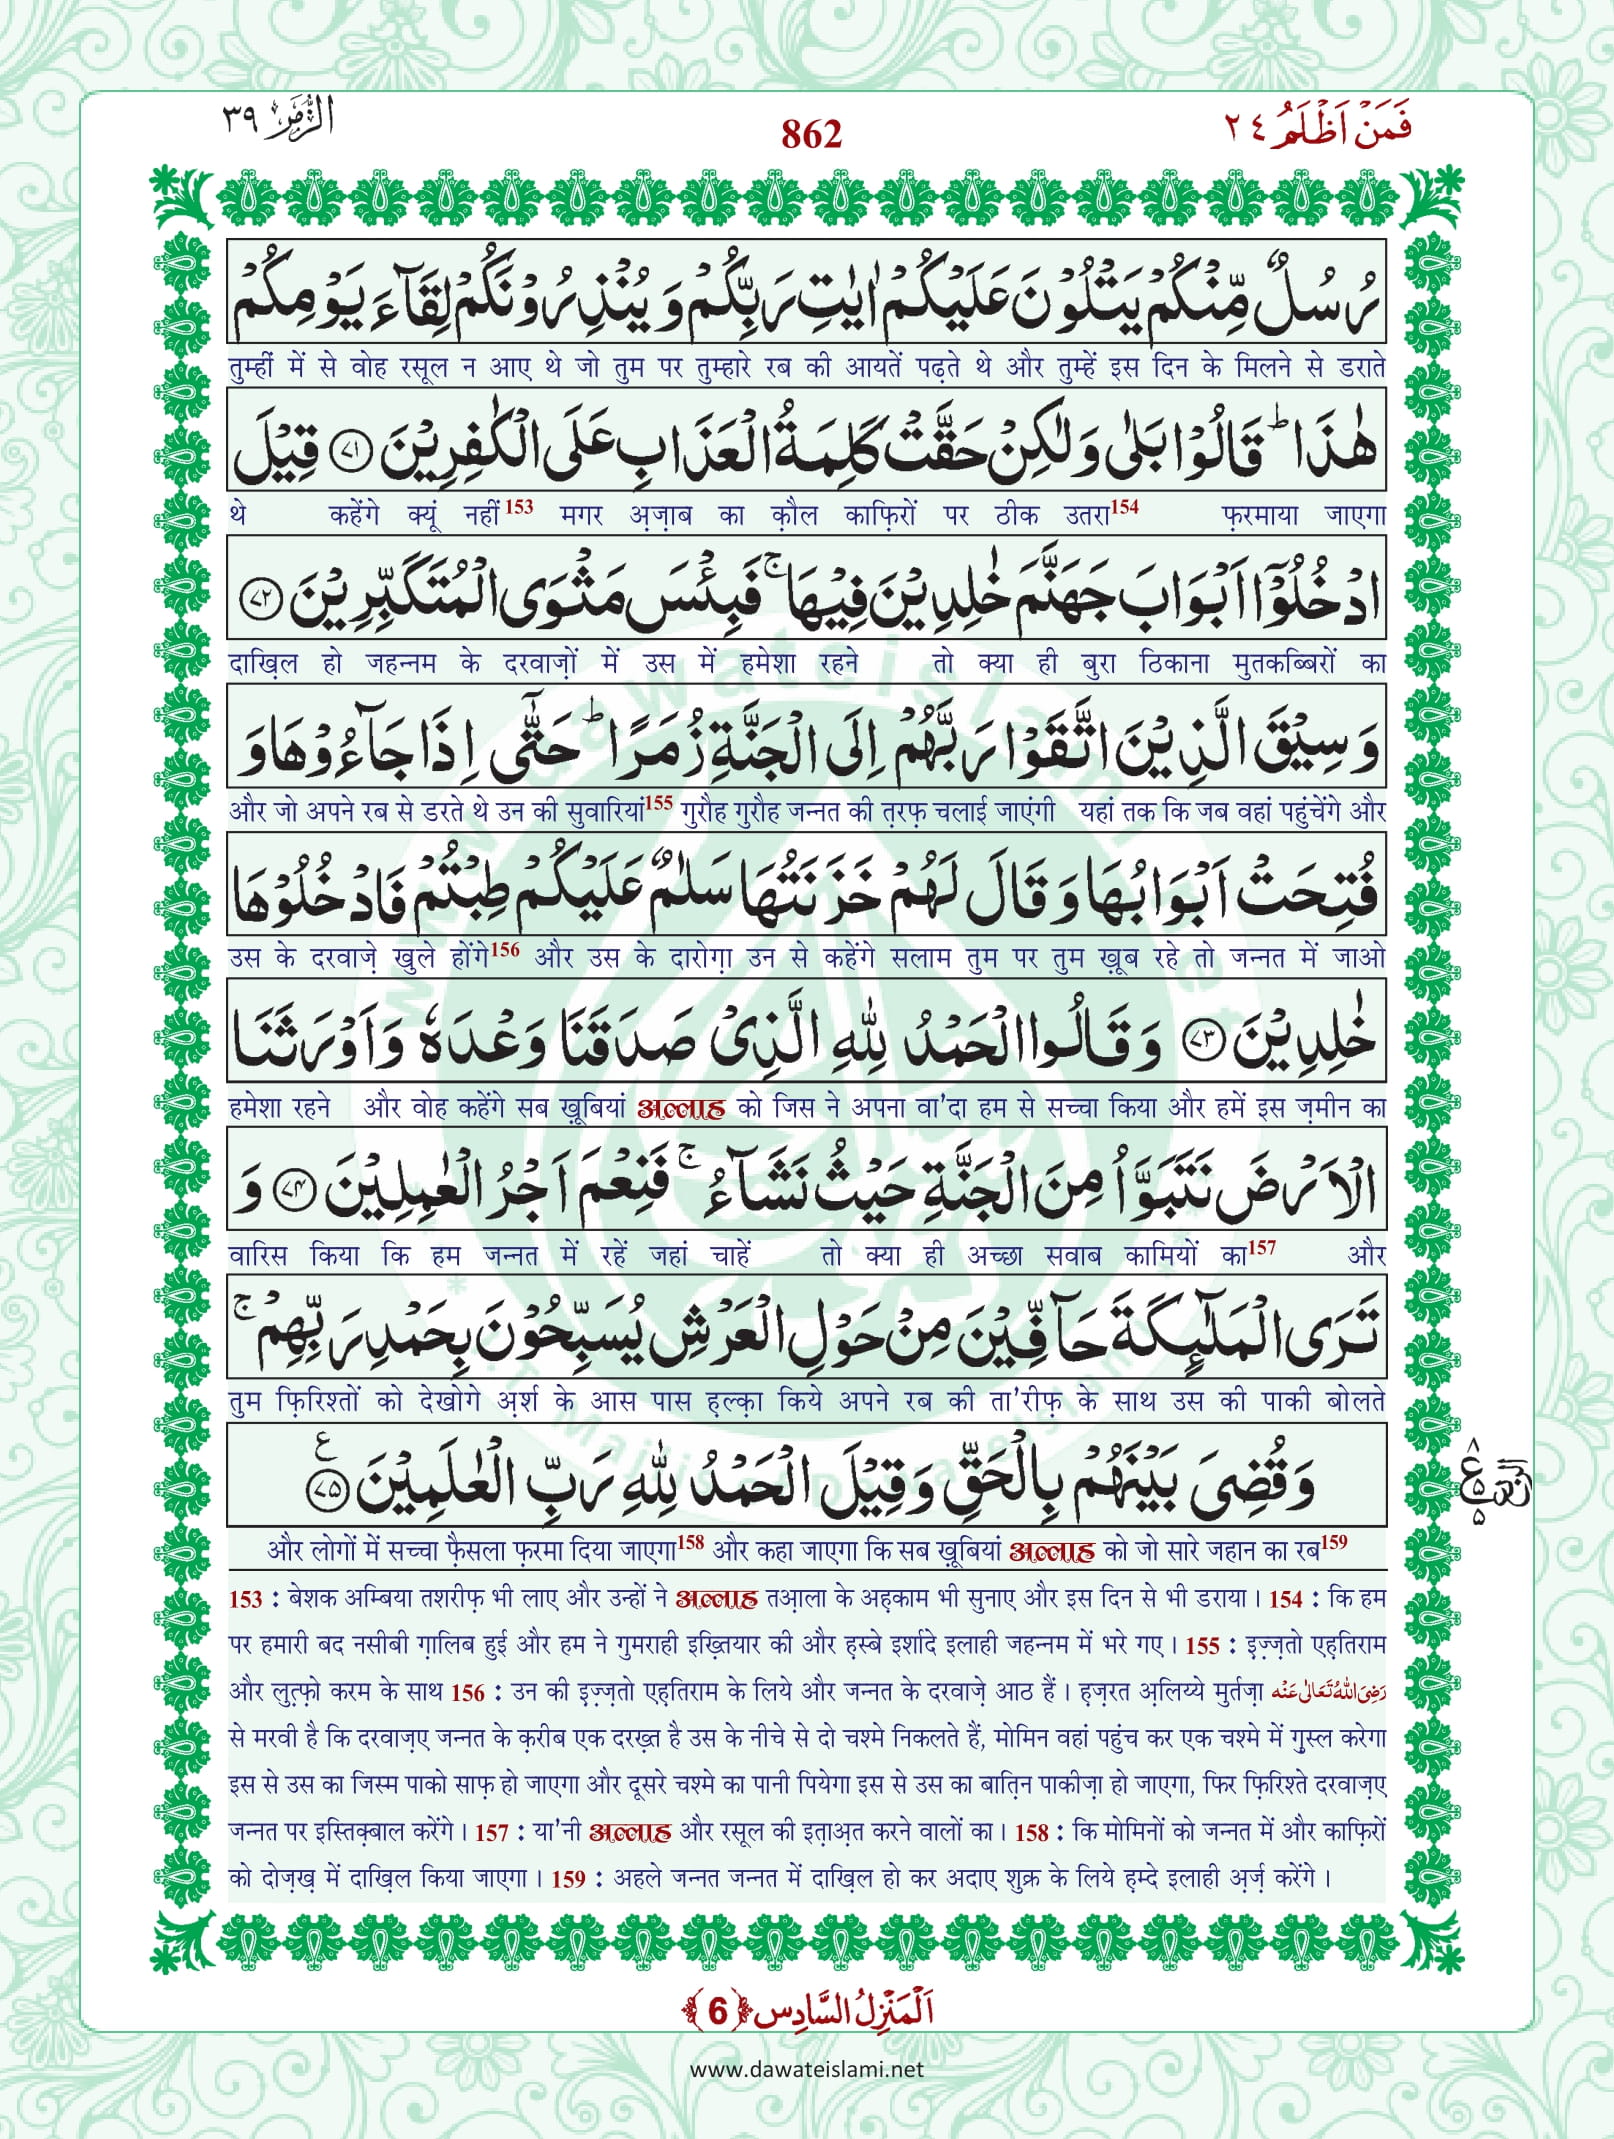 الزُّمَر ٣٩
862
فَمَنْ اَظْلَمُ ٢٤
رُسُلٌ مِّنْكُمْ یَتْلُوْنَ عَلَیْكُمْ اٰیٰتِ رَبِّكُمْ وَ یُنْذِرُوْنَكُمْ لِقَآءَ یَوْمِكُمْ
तुम्हीं में से वोह रसूल न आए थे जो तुम पर तुम्हारे रब की आयतें पढ़ते थे और तुम्हें इस दिन के मिलने से डराते
هٰذَاؕ قَالُوْا بَلٰى وَ لٰكِنْ حَقَّتْ كَلِمَةُ الْعَذَابِ عَلَى الْكٰفِرِیْنَ ﴿۷۱﴾ قِیْلَ
थे कहेंगे क्यूं नहीं153 मगर अज़ाब का क़ौल काफ़िरों पर ठीक उतरा154 फ़रमाया जाएगा
ادْخُلُوْۤا اَبْوَابَ جَهَنَّمَ خٰلِدِیْنَ فِیْهَاۚ فَبِئْسَ مَثْوَى الْمُتَكَبِّرِیْنَ ﴿۷۲﴾
दाख़िल हो जहन्नम के दरवाज़ों में उस में हमेशा रहने तो क्या ही बुरा ठिकाना मुतकब्बिरों का
وَ سِیْقَ الَّذِیْنَ اتَّقَوْا رَبَّهُمْ اِلَى الْجَنَّةِ زُمَرًاؕ حَتّٰۤى اِذَا جَآءُوْهَا وَ
और जो अपने रब से डरते थे उन की सुवारियां155 गुरौह गुरौह जन्नत की त़रफ़ चलाई जाएंगी यहां तक कि जब वहां पहुंचेंगे और
فُتِحَتْ اَبْوَابُهَا وَ قَالَ لَهُمْ خَزَنَتُهَا سَلٰمٌ عَلَیْكُمْ طِبْتُمْ فَادْخُلُوْهَا
उस के दरवाज़े खुले होंगे156 और उस के दारोग़ा उन से कहेंगे सलाम तुम पर तुम ख़ूब रहे तो जन्नत में जाओ
خٰلِدِیْنَ ﴿۷۳﴾ وَ قَالُوا الْحَمْدُ لِلّٰهِ الَّذِیْ صَدَقَنَا وَعْدَهٗ وَ اَوْرَثَنَا
हमेशा रहने और वोह कहेंगे सब ख़ूबियां अल्लाह को जिस ने अपना वा'दा हम से सच्चा किया और हमें इस ज़मीन का
الْاَرْضَ نَتَبَوَّاُ مِنَ الْجَنَّةِ حَیْثُ نَشَآءُۚ فَنِعْمَ اَجْرُ الْعٰمِلِیْنَ ﴿۷۴﴾ وَ
वारिस किया कि हम जन्नत में रहें जहां चाहें तो क्या ही अच्छा सवाब कामियों का157 और
تَرَى الْمَلٰٓىٕكَةَ حَآفِّیْنَ مِنْ حَوْلِ الْعَرْشِ یُسَبِّحُوْنَ بِحَمْدِ رَبِّهِمْۚ
तुम फ़िरिश्तों को देखोगे अ़र्श के आस पास ह़ल्क़ा किये अपने रब की ता'रीफ़ के साथ उस की पाकी बोलते
وَ قُضِیَ بَیْنَهُمْ بِالْحَقِّ وَ قِیْلَ الْحَمْدُ لِلّٰهِ رَبِّ الْعٰلَمِیْنَ ﴿۷۵﴾ ع
और लोगों में सच्चा फ़ैसला फ़रमा दिया जाएगा158 और कहा जाएगा कि सब ख़ूबियां अल्लाह को जो सारे जहान का रब159
153 : बेशक अम्बिया तशरीफ़ भी लाए और उन्हों ने अल्लाह तआ़ला के अह़काम भी सुनाए और इस दिन से भी डराया। 154 : कि हम
पर हमारी बद नसीबी ग़ालिब हुई और हम ने गुमराही इख़्तियार की और ह़स्बे इर्शादे इलाही जहन्नम में भरे गए। 155 : इ़ज़्ज़तो एह़तिराम
और लुत़्फ़ो करम के साथ 156 : उन की इ़ज़्ज़तो एह़तिराम के लिये और जन्नत के दरवाज़े आठ हैं। ह़ज़रत अ़लिय्ये मुर्तज़ा رَضِیَ اللّٰهُ تَعَالٰی عَنْه
से मरवी है कि दरवाज़ए जन्नत के क़रीब एक दरख़्त है उस के नीचे से दो चश्मे निकलते हैं, मोमिन वहां पहुंच कर एक चश्मे में ग़ुस्ल करेगा
इस से उस का जिस्म पाको साफ़ हो जाएगा और दूसरे चश्मे का पानी पियेगा इस से उस का बात़िन पाकीज़ा हो जाएगा, फिर फ़िरिश्ते दरवाज़ए
जन्नत पर इस्तिक़्बाल करेंगे। 157 : या'नी अल्लाह और रसूल की इत़ाअ़त करने वालों का। 158 : कि मोमिनों को जन्नत में और काफ़िरों
को दोज़ख़ में दाख़िल किया जाएगा। 159 : अहले जन्नत जन्नत में दाख़िल हो कर अदाए शुक्र के लिये ह़म्दे इलाही अ़र्ज़ करेंगे।
اَلْمَنْزِلُ السَّادِس ﴿6﴾
www.dawateislami.net